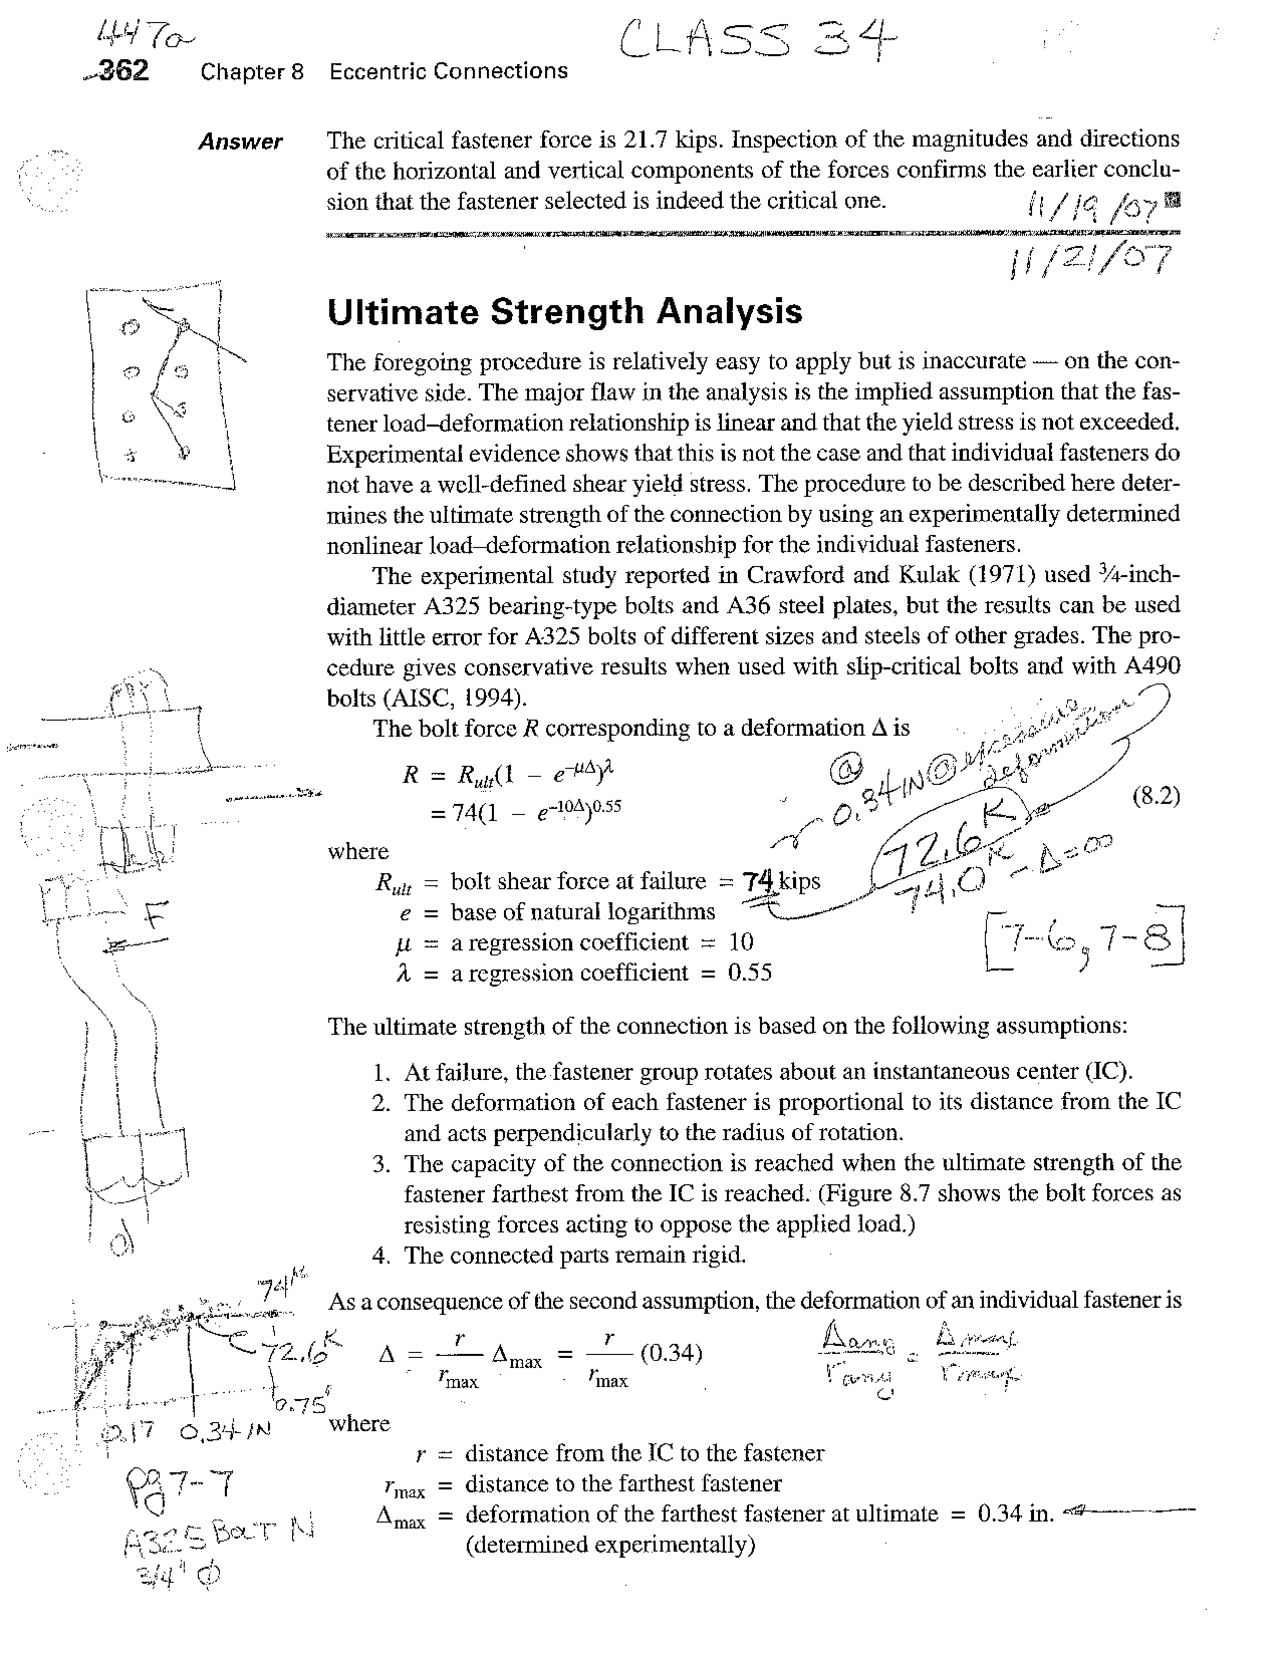 447a
CLASS 34
362 Chapter 8 Eccentric Connections
Answer The critical fastener force is 21.7 kips. Inspection of the magnitudes and directions
of the horizontal and vertical components of the forces confirms the earlier conclu-
sion that the fastener selected is indeed the critical one.
11/19/07
11/21/07
Ultimate Strength Analysis
The foregoing procedure is relatively easy to apply but is inaccurate — on the con-
servative side. The major flaw in the analysis is the implied assumption that the fas-
tener load–deformation relationship is linear and that the yield stress is not exceeded.
Experimental evidence shows that this is not the case and that individual fasteners do
not have a well-defined shear yield stress. The procedure to be described here deter-
mines the ultimate strength of the connection by using an experimentally determined
nonlinear load–deformation relationship for the individual fasteners.
The experimental study reported in Crawford and Kulak (1971) used ¾-inch-
diameter A325 bearing-type bolts and A36 steel plates, but the results can be used
with little error for A325 bolts of different sizes and steels of other grades. The pro-
cedure gives conservative results when used with slip-critical bolts and with A490
bolts (AISC, 1994).
The bolt force R corresponding to a deformation Δ is
R = Rult(1 − e^−μΔ)^λ
= 74(1 − e^−10Δ)^0.55
(8.2)
@
0.34 IN @ excessive
deformation
72.6K
74.0K - Δ=∞
where
Rult = bolt shear force at failure = 74 kips
e = base of natural logarithms
μ = a regression coefficient = 10
λ = a regression coefficient = 0.55
[7-6, 7-8]
F
The ultimate strength of the connection is based on the following assumptions:
1. At failure, the fastener group rotates about an instantaneous center (IC).
2. The deformation of each fastener is proportional to its distance from the IC
and acts perpendicularly to the radius of rotation.
3. The capacity of the connection is reached when the ultimate strength of the
fastener farthest from the IC is reached. (Figure 8.7 shows the bolt forces as
resisting forces acting to oppose the applied load.)
4. The connected parts remain rigid.
d
As a consequence of the second assumption, the deformation of an individual fastener is
Δ = r/rmax Δmax = r/rmax (0.34)
Δany/rany = Δmax/rmax
74K
72.6K
0.75"
0.17 0.34 IN
where
r = distance from the IC to the fastener
rmax = distance to the farthest fastener
Δmax = deformation of the farthest fastener at ultimate = 0.34 in.
(determined experimentally)
pg 7-7
A325 BOLT N
3/4" Ø